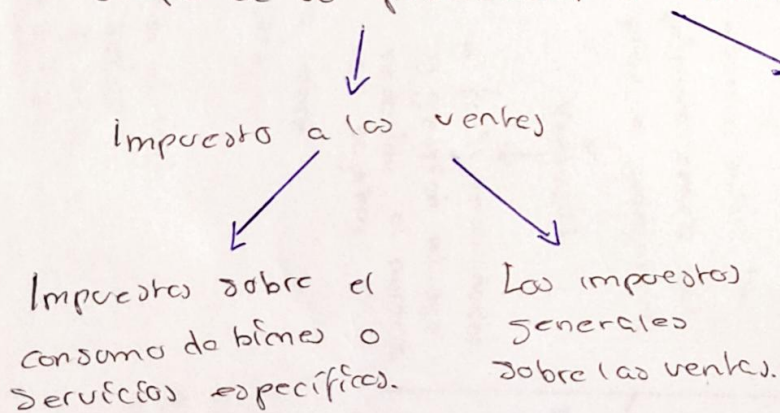 Impuesto a las ventas
Impuestos sobre el
consumo de bienes o
servicios específicos.
Los impuestos
generales
sobre las ventas.